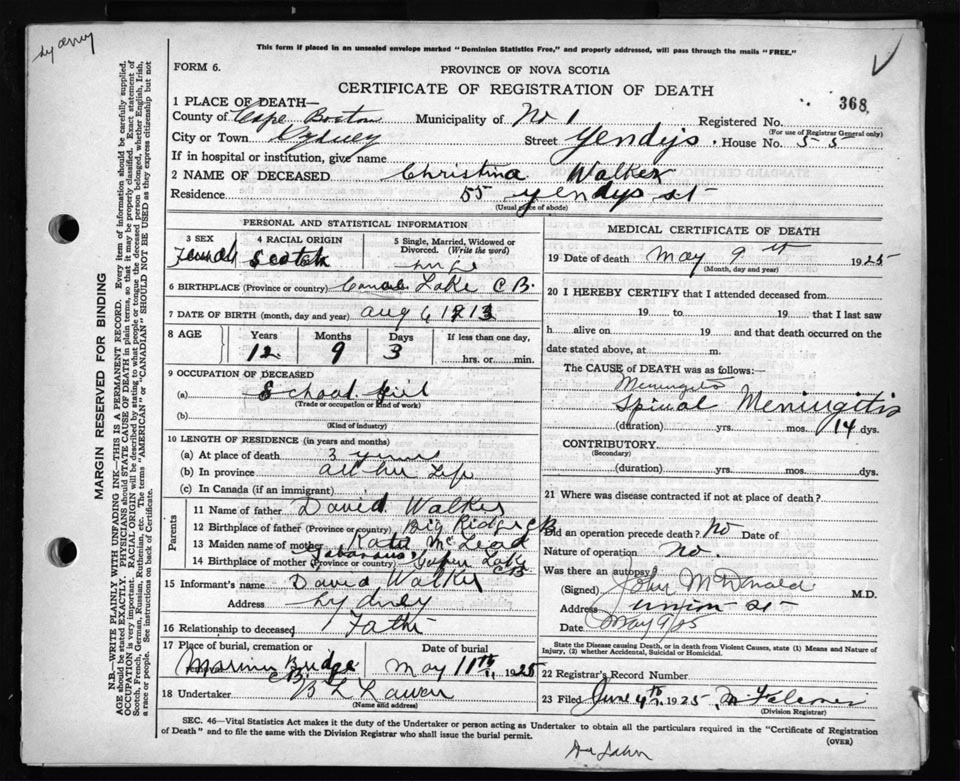 Sydney
This form if placed in an unsealed envelope marked "Dominion Statistics Free," and properly addressed, will pass through the mails "FREE."
FORM 6.
PROVINCE OF NOVA SCOTIA
CERTIFICATE OF REGISTRATION OF DEATH
368
1 PLACE OF DEATH—
County of Cape Breton Municipality of No 1 Registered No.
(For use of Registrar General only)
City or Town Sydney Street Yendys. House No. 55
If in hospital or institution, give name
2 NAME OF DECEASED Christina Walker
Residence 55 yendys st
(Usual place of abode)
PERSONAL AND STATISTICAL INFORMATION
3 SEX 4 RACIAL ORIGIN 5 Single, Married, Widowed or Divorced. (Write the word)
Female Scotch
6 BIRTHPLACE (Province or country) Lake C B.
7 DATE OF BIRTH (month, day and year) Aug 6 1912
8 AGE Years Months Days If less than one day,
12 9 3 hrs. or min.
9 OCCUPATION OF DECEASED
(a) School Girl
(Trade or occupation or kind of work)
(b)
(Kind of industry)
10 LENGTH OF RESIDENCE (in years and months)
(a) At place of death 3 years
(b) In province all her Life
(c) In Canada (if an immigrant)
Parents
11 Name of father David Walker
12 Birthplace of father (Province or country) Big Ridge C B
13 Maiden name of mother Kate McLeod
14 Birthplace of mother (Province or country) Gabarus Lake CB
15 Informant's name David Walker
Address Sydney
16 Relationship to deceased Father
17 Place of burial, cremation or Date of burial
Marion Bridge C B. May 11th 1925
18 Undertaker
(Name and address)
MEDICAL CERTIFICATE OF DEATH
19 Date of death May 9th 1925
(Month, day and year)
20 I HEREBY CERTIFY that I attended deceased from
19 to 19 that I last saw
h alive on 19 and that death occurred on the
date stated above, at m.
The CAUSE of DEATH was as follows:—
Meningitis
Spinal Meningitis
(duration) yrs. mos. 14 dys.
CONTRIBUTORY.
(Secondary)
(duration) yrs. mos. dys.
21 Where was disease contracted if not at place of death?
Did an operation precede death? No Date of
Nature of operation No.
Was there an autopsy
(Signed) John McDonald M.D.
Address Union st
Date May 9/25
State the Disease causing Death, or in death from Violent Causes, state (1) Means and Nature of Injury, (2) whether Accidental, Suicidal or Homicidal.
22 Registrar's Record Number
23 Filed June 4th, 1925
(Division Registrar)
SEC. 46—Vital Statistics Act makes it the duty of the Undertaker or person acting as Undertaker to obtain all the particulars required in the "Certificate of Registration
of Death" and to file the same with the Division Registrar who shall issue the burial permit.
(OVER)
MARGIN RESERVED FOR BINDING
N.B.—WRITE PLAINLY WITH UNFADING INK—THIS IS A PERMANENT RECORD. Every item of information should be carefully supplied.
AGE should be stated EXACTLY. PHYSICIANS should STATE CAUSE OF DEATH in plain terms, so that it may be properly classified. Exact statement of
OCCUPATION is very important. RACIAL ORIGIN will be described by stating to what people or tongue the deceased person belonged, whether English, Irish,
Scotch, French, German, Russian, Ruthenian, etc. The terms "AMERICAN" or "CANADIAN" SHOULD NOT BE USED as they express citizenship but not
a race or people. See instructions on back of Certificate.